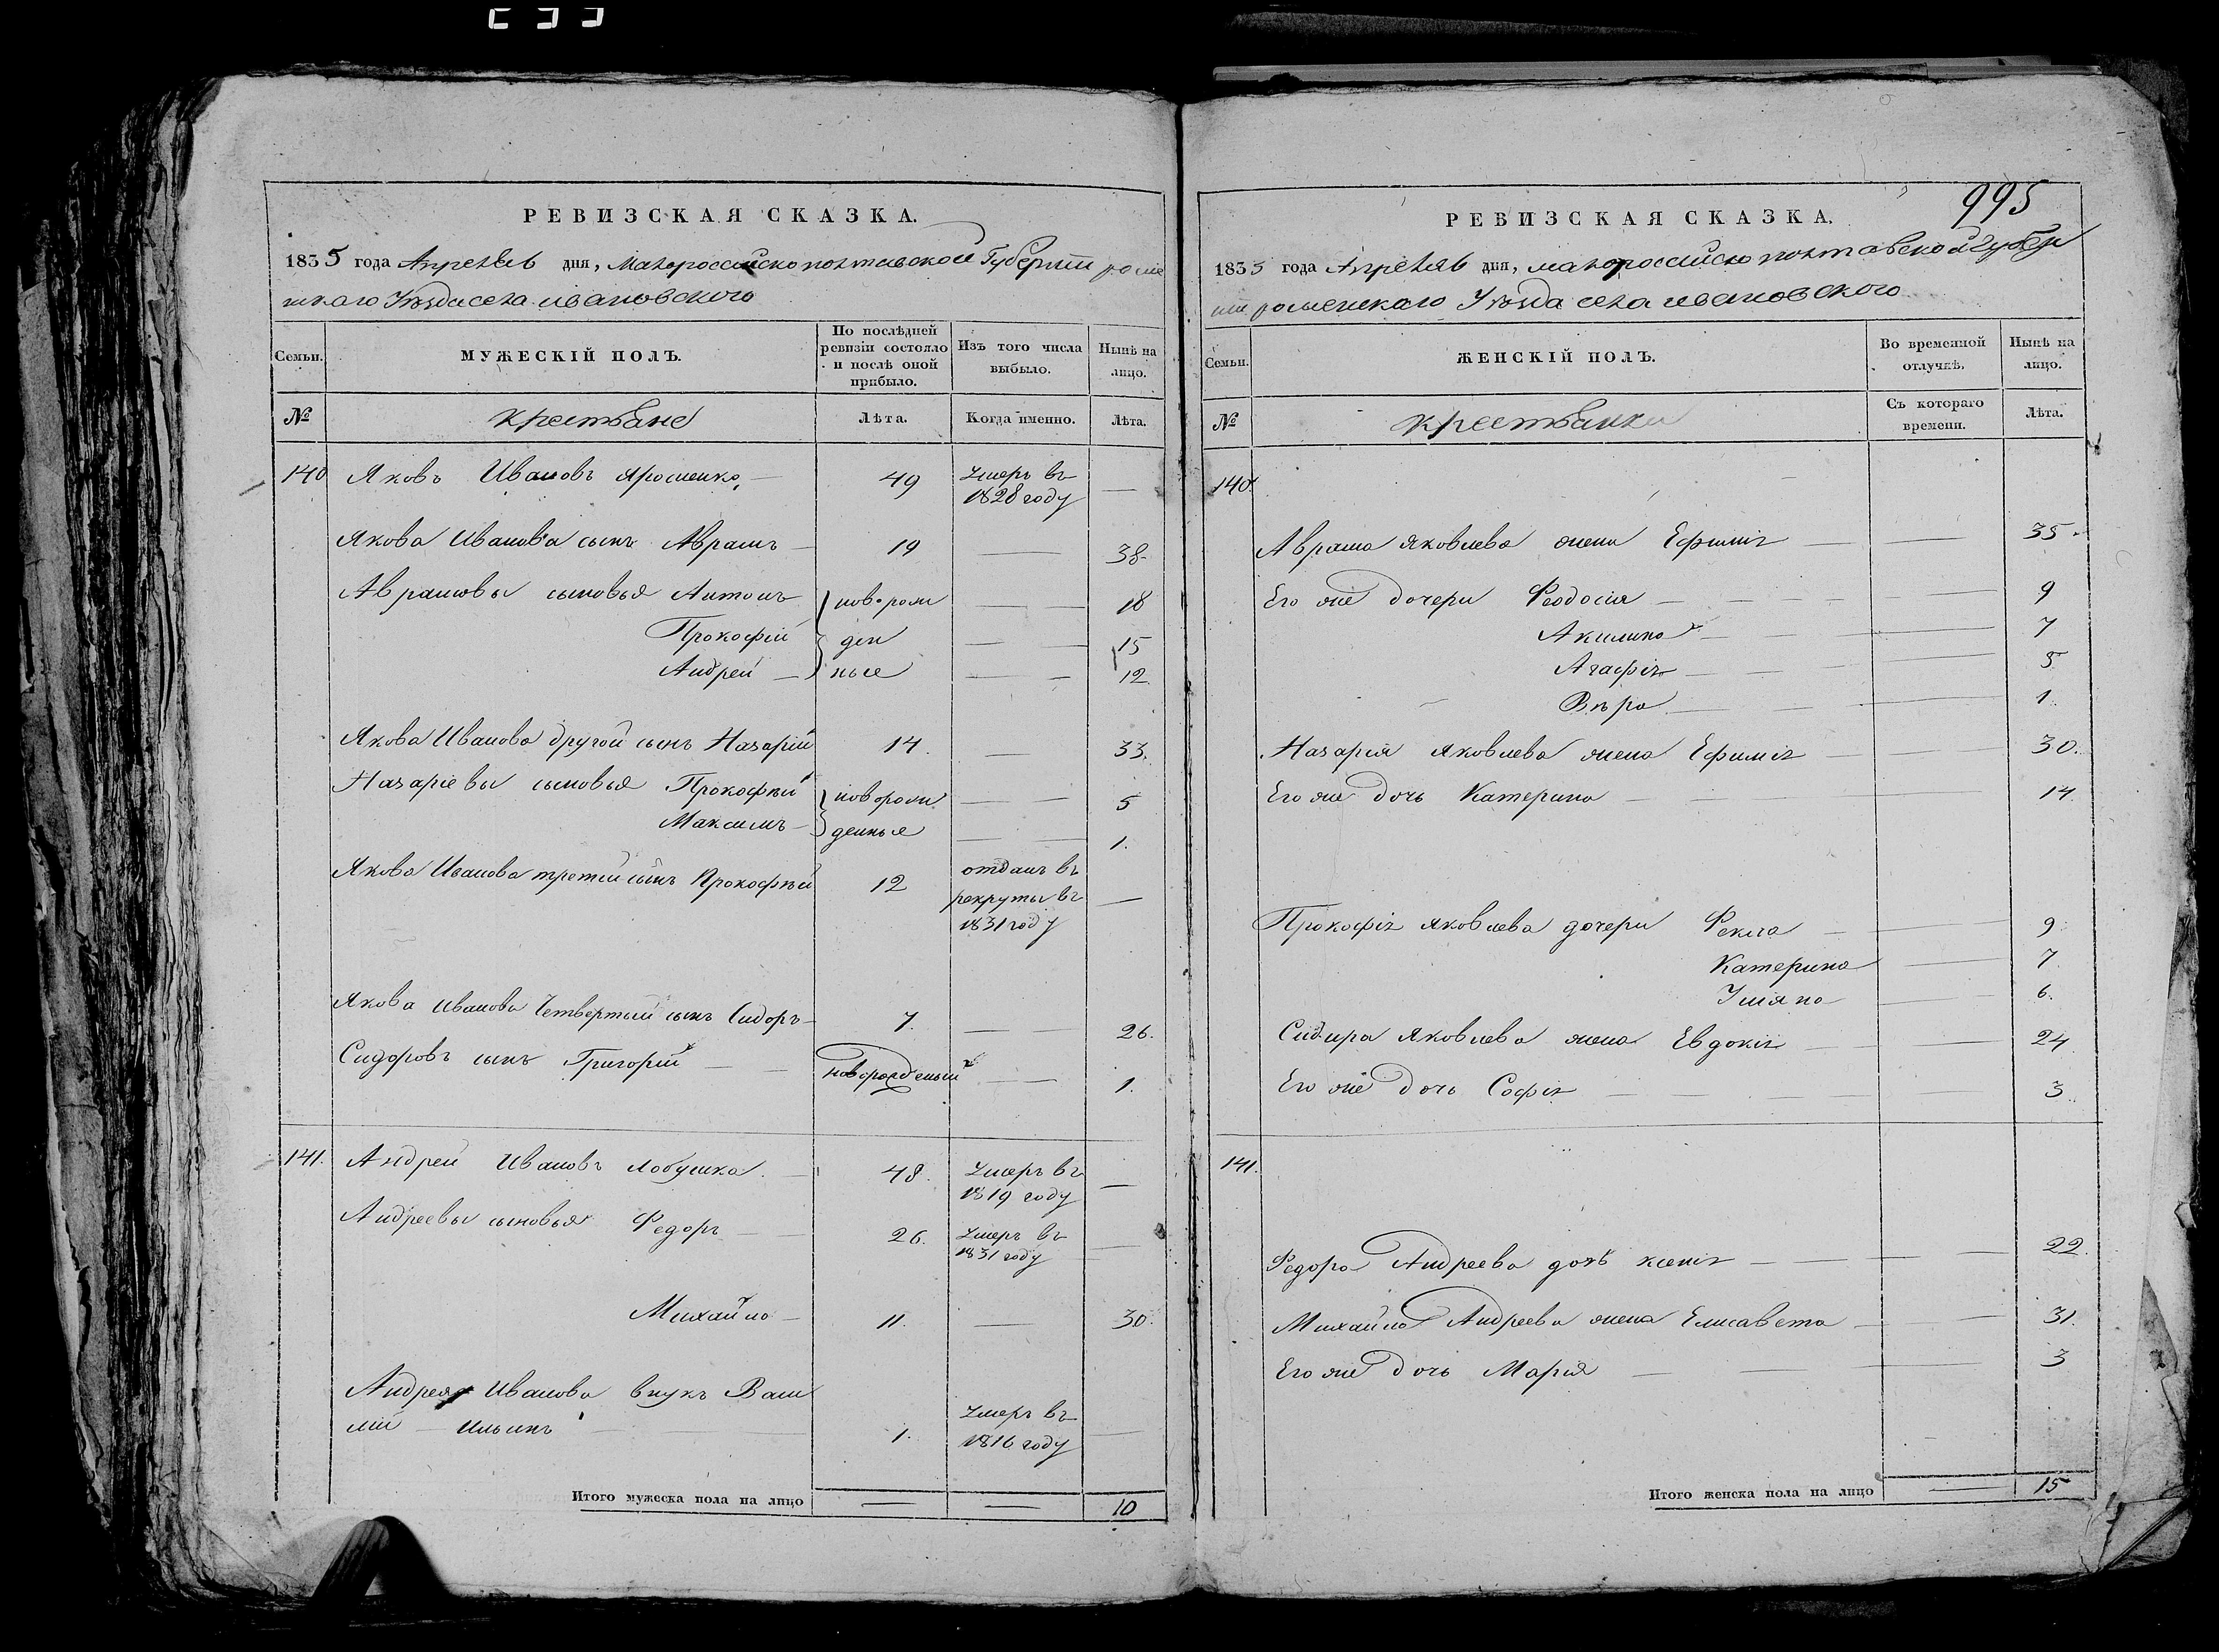 РЕВИЗСКАЯ СКАЗКА.
1835 года Апреля 6 дня, Малороссийско полтавской Губернии роме
нскаго Уѣзда села ивановского
Семьи.
МУЖЕСКІЙ ПОЛЪ.
По послѣдней ревизіи состояло и послѣ оной прибыло.
Изъ того числа выбыло.
Нынѣ на лицо.
№ крестьяне Лѣта. Когда именно. Лѣта.
140 Яковъ Ивановъ Ярошенко 49 умеръ въ
1828 году
Якова Иванова сынъ Аврамъ 19 38
Аврамовы сыновья Антонъ новорож 18
Прокофій ден 15
Андрей ные 12
Якова Иванова другой сынъ Назарій 14. 33.
Назаріевы сыновья Прокофѣй новорож 5
Максимъ денные 1.
Якова Иванова третій сынъ Прокофѣй 12 отданъ въ
рекруты въ
1831 году
Якова Иванова Четвертый сынъ Сидоръ 7. 26.
Сидоровъ сынъ Григорій новорожденый 1.
141. Андрей Ивановъ Лобушка 48. умеръ въ
1819 году
Андреевы сыновья Федоръ 26. умеръ въ
1831 году
Михайло 11. 30.
Андрея Иванова внукъ Васи
лій Ильинъ 1. умеръ въ
1816 году
Итого мужеска пола на лицо 10
995
РЕВИЗСКАЯ СКАЗКА.
1835 года Апреля 6 дня, малороссийско полтавской губер
нии роменскаго Уѣзда села ивановского
Семьи.
ЖЕНСКІЙ ПОЛЪ.
Во временной отлучкѣ.
Нынѣ на лицо.
№ крестьянки Съ котораго времени. Лѣта.
140.
Аврама Яковлева жена Ефимія 35
Его же дочери Феодосія 9
Акилина 7
Агафія 5
Вѣра 1.
Назарія Яковлева жена Ефимія 30.
Его же дочь Катерина 14.
Прокофія Яковлева дочери Фекла 9.
Катерина 7.
Ульяна 6.
Сидора Яковлева жена Евдокія 24
Его же дочь Софія 3
141.
Федора Андреева дочь ксенія 22
Михайла Андреева жена Елисавета 31.
Его же дочь Марія 3
Итого женска пола на лицо 15